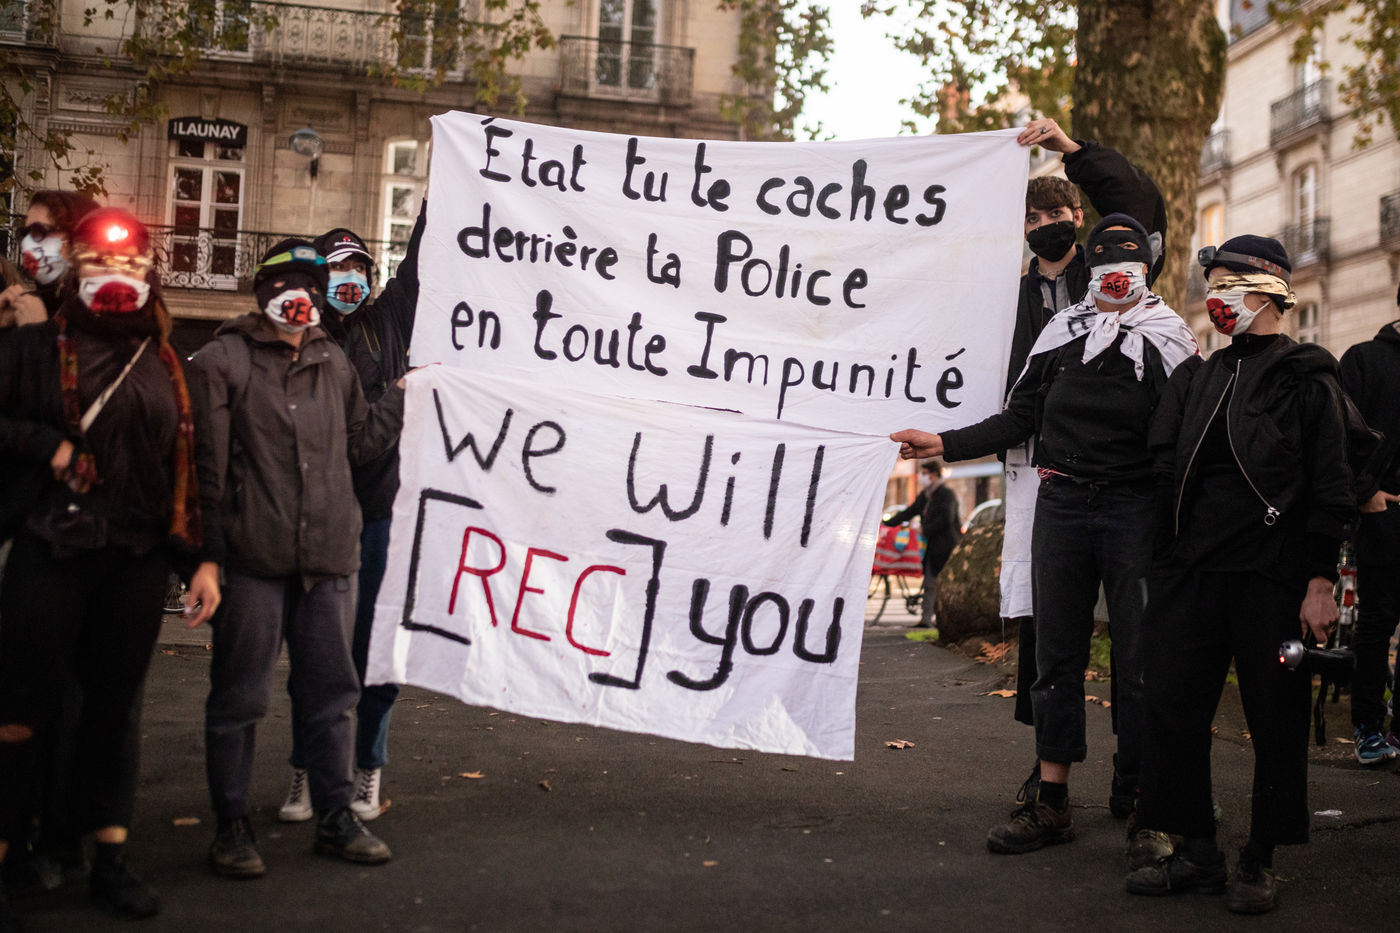 LAUNAY
État tu te caches
derrière ta Police
en toute Impunité
We Will
[REC] you
REC
REC